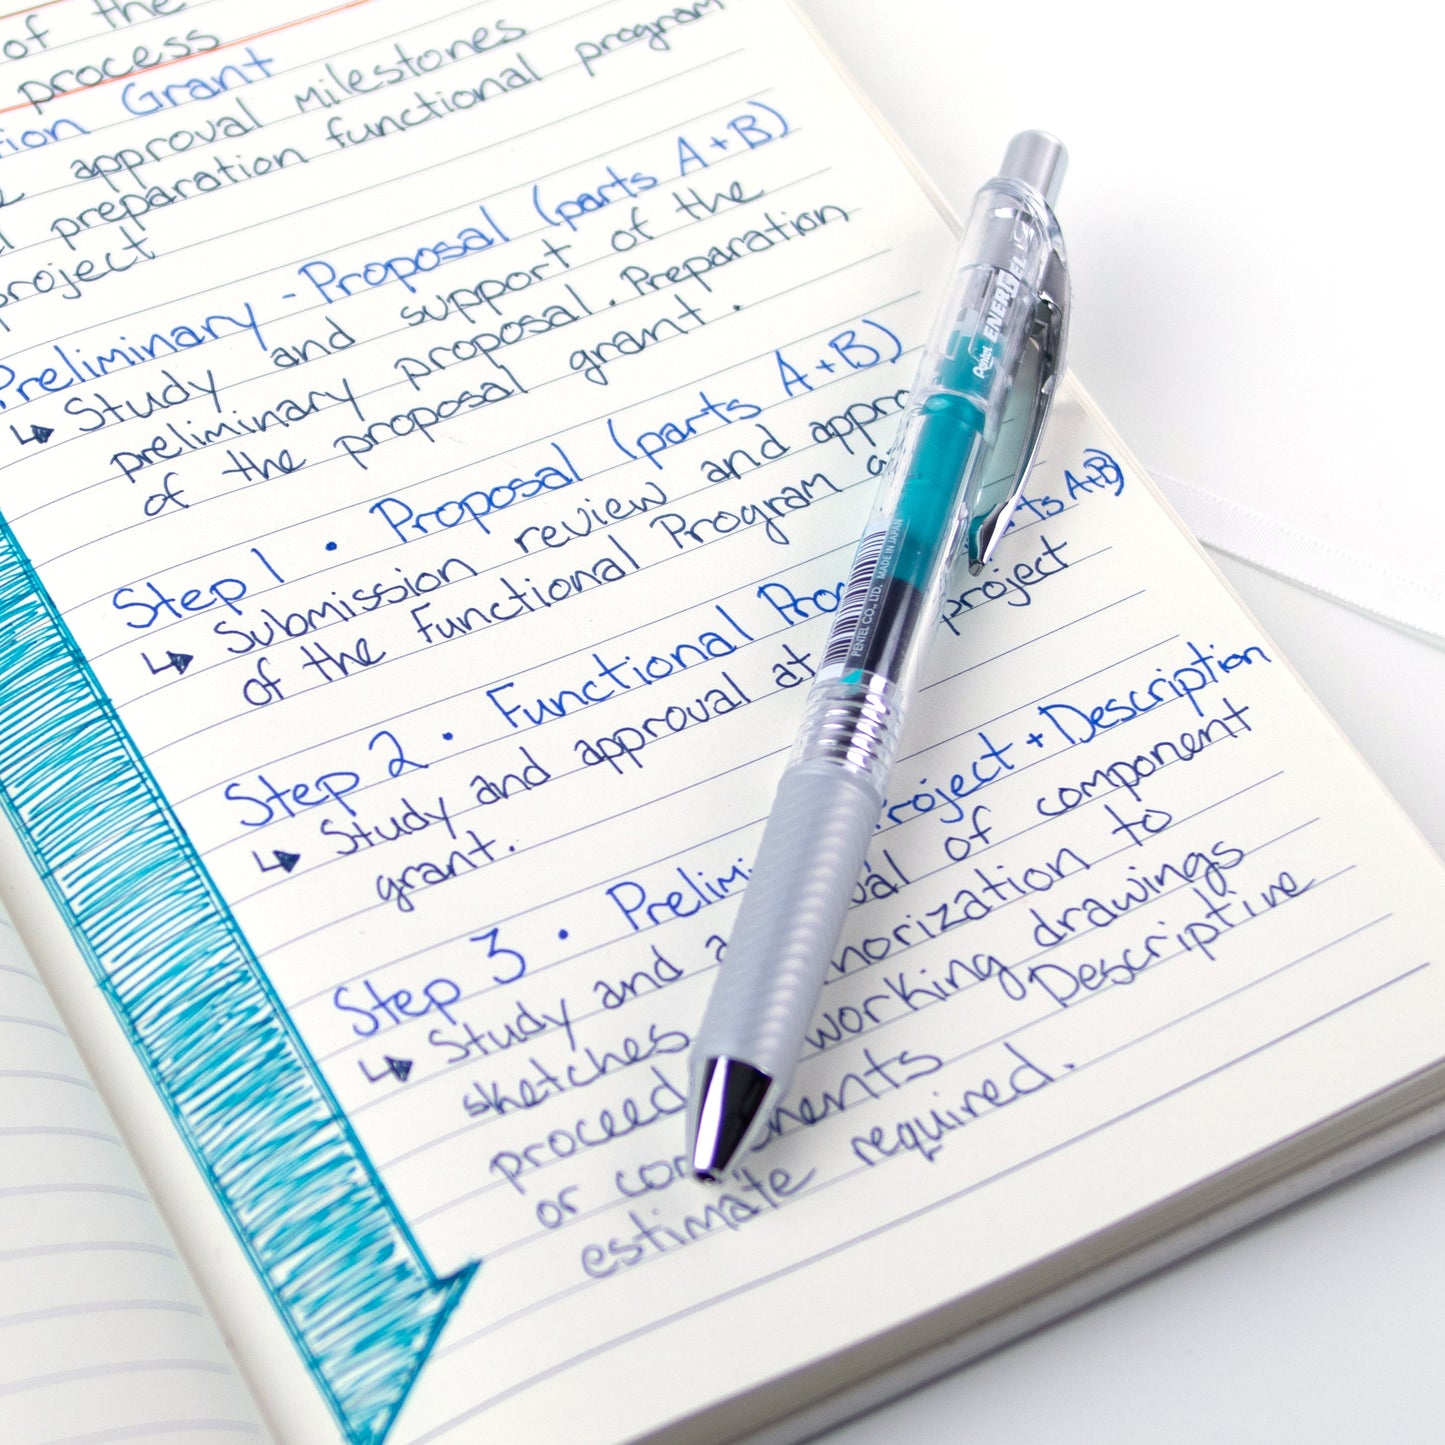 of the
process
Grant
approval milestones
preparation functional program
project
Preliminary - Proposal (parts A+B)
Study and support of the
preliminary proposal. Preparation
of the proposal grant.
Step 1 • Proposal (parts A+B)
Submission review and appro
of the Functional Program a
Step 2 • Functional Pro ts A+B)
Study and approval at project
grant.
Step 3 • Prelim roject + Description
Study and a al of component
sketches horization to
proceed working drawings
or co nents Descriptive
estimate required.
Pentel ENERGEL
PENTEL CO., LTD. MADE IN JAPAN